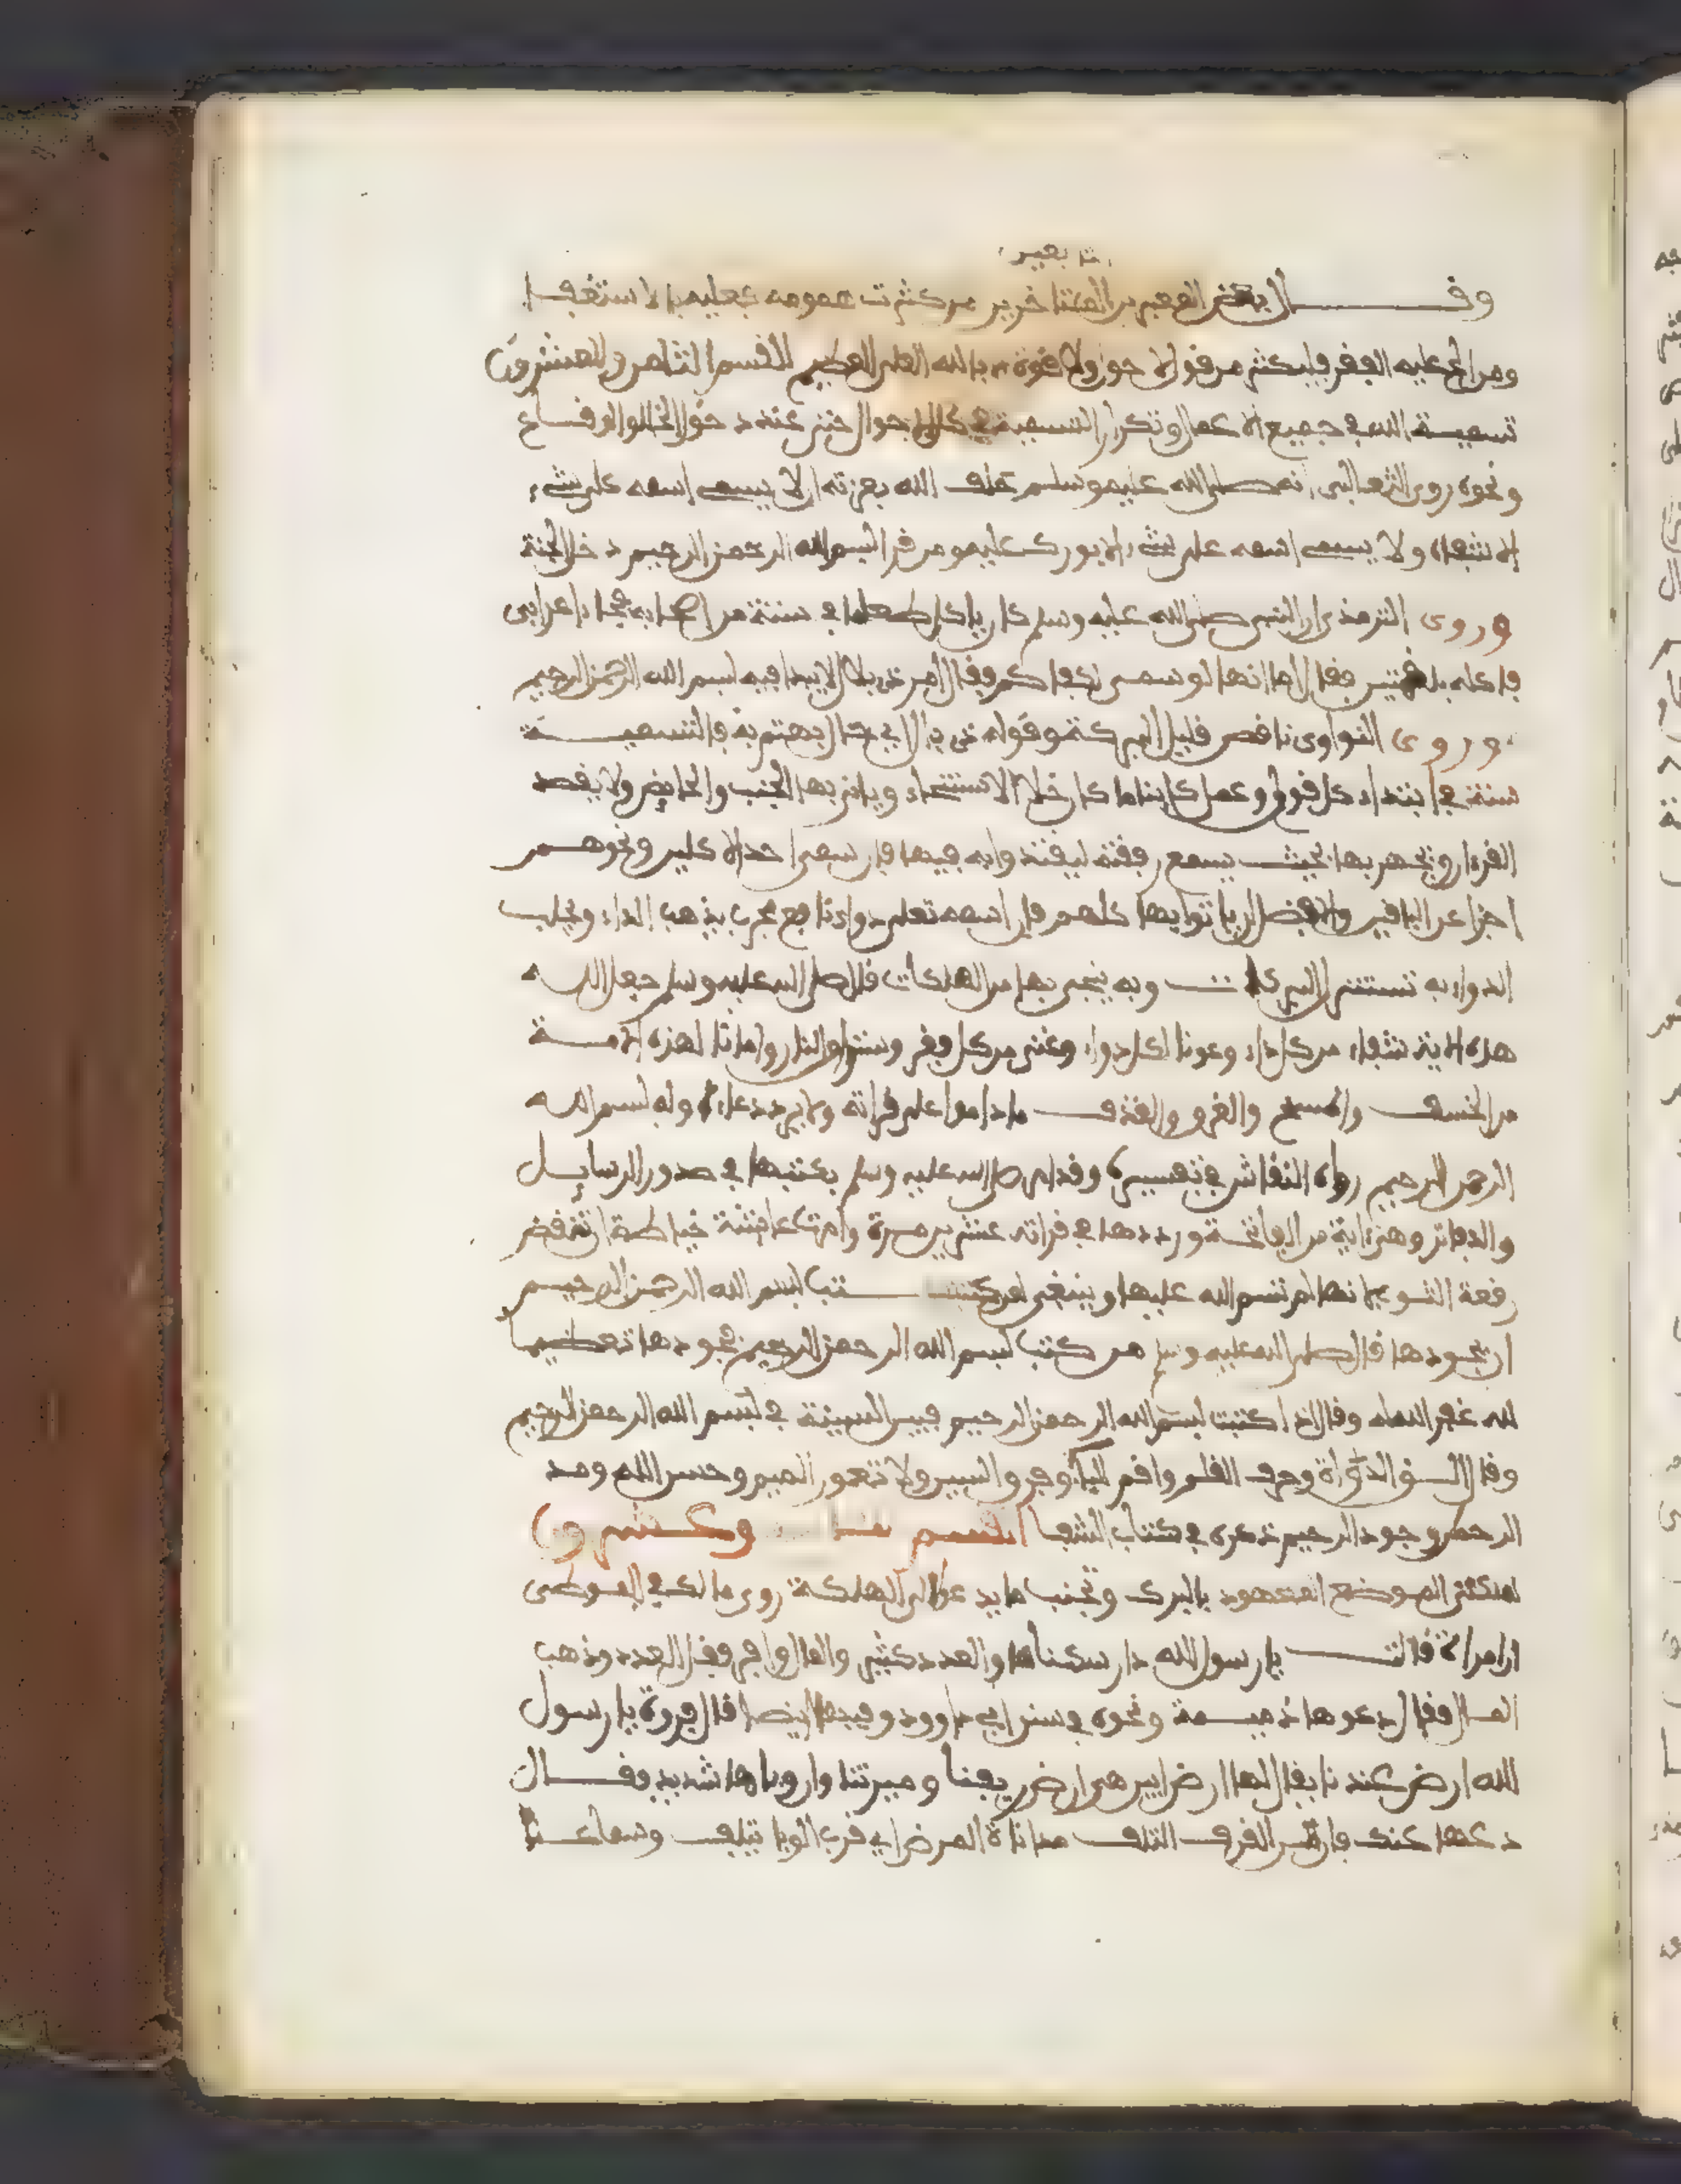 وقال بعض المعمرين المتأخرين من كثرت همومه فعليه بالاستغفار
ومن ألح عليه الفقر فليكثر من قول لا حول ولا قوة إلا بالله العلي العظيم القسم الثامن والعشرون
تسمية الله في جميع الأعمال وتكرار التسمية في كل الأحوال حتى عند دخول الخلا والوقاع
ونحوه روى الثعالبي أنه صلى الله عليه وسلم حلف الله بعزته أن لا يسمى اسمه على شيء
إلا شفاه ولا يسمى اسمه على شيء إلا بورك عليه ومن قرأ بسم الله الرحمن الرحيم دخل الجنة
وروى الترمذي أن النبي صلى الله عليه وسلم كان يأكل طعاما في ستة من أصحابه فجاء أعرابي
فأكله بلقمتين فقال أما إنها لو سمى لكفاكم وقال أمر ذي بال لا يبدأ فيه بسم الله الرحمن الرحيم
وروى النواوي ناقص قليل البركة وقوله ذي بال أي حال يهتم به فالتسمية
سنة في ابتداء كل قول وعمل كائنا ما كان خلا الاستنجاء ويأتي بها الجنب والحائض ولا يقصد
القرءان ويجهر بها بحيث يسمع رفقته ليقتدوا به فيها فإن سمى أحد الآكلين ونحوهم
أجزأ عن الباقين والأفضل أن يأتوا بها كلهم فإن اسمه تعلى دواء نافع مجرب يذهب الداء ويجلب
الدواء به تستنزل البركات وبه ينجى بها من الهلكات قال صلى الله عليه وسلم جعل الله
هذه الآية شفاء من كل داء وعونا لكل دواء وغنى من كل فقر وسترا من النار وأمانا لهذه الأمة
من الخسف والمسخ والغرق والقذف ما داموا على قراته ولا يرد دعاء أوله بسم الله
الرحمن الرحيم رواه النقاش في تفسيره وقد أمر صلى الله عليه وسلم بكتبها في صدور الرسايل
والدفاتر وهي آية من الفاتحة ورددها في قراته عشرين مرة وأمرت عائشة خياطة أن تنقض
رقعة الثوب لأنها لم تسم الله عليها وينبغي لمن كتب بسم الله الرحمن الرحيم
أن يجودها قال صلى الله عليه وسلم من كتب بسم الله الرحمن الرحيم فجودها تعظيما
لله غفر الله له وقال إذا كتبت بسم الله الرحمن الرحيم فبين السين في بسم الله الرحمن الرحيم
وقال ألق الدواة وحرف القلم وأقم الباء وفرق السين ولا تعور الميم وحسن الله ومد
الرحمن وجود الرحيم ذكره في كتاب الشفا القسم وعشرون
المكنى الموضع المعهود بالبرك وتجنب ما يدعو إلى الهلكة روى مالك في الموطى
أن امرأة قالت يا رسول الله دار سكناها والعدد كثير والمال وافر فقل العدد وذهب
المال فقال دعوها ذميمة ونحوه في سنن أبي داوود وفيها أيضا قال فروة يا رسول
الله أرض عندنا يقال لها أرض أبين هي أرض ريفنا وميرتنا وإن وباها شديد فقال
دعها عنك فإن من القرف التلف مداناة المرض أي قرب الوبا تلف وسماعا